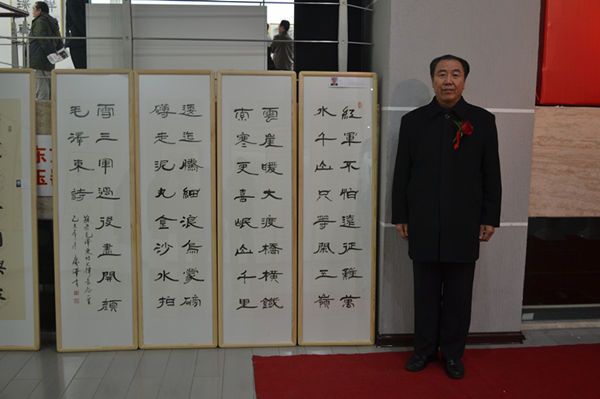 紅軍不怕遠征難萬
水千山只等閒五嶺
雲崖暖大渡橋橫鐵
索寒更喜岷山千里
逶迤騰細浪烏蒙磅
礴走泥丸金沙水拍
雪三軍過後盡開顏
毛澤東詩
东